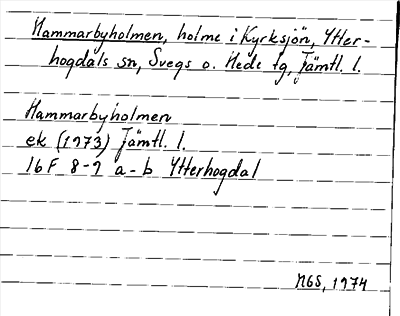 Hammarbyholmen, holme i Kyrksjön, Ytter-
hogdals sn, Svegs o. Hede tg, Jämtl. l.
Hammarbyholmen
ek (1973) Jämtl. l.
16 F 8-9 a-b Ytterhogdal
NGS, 1974